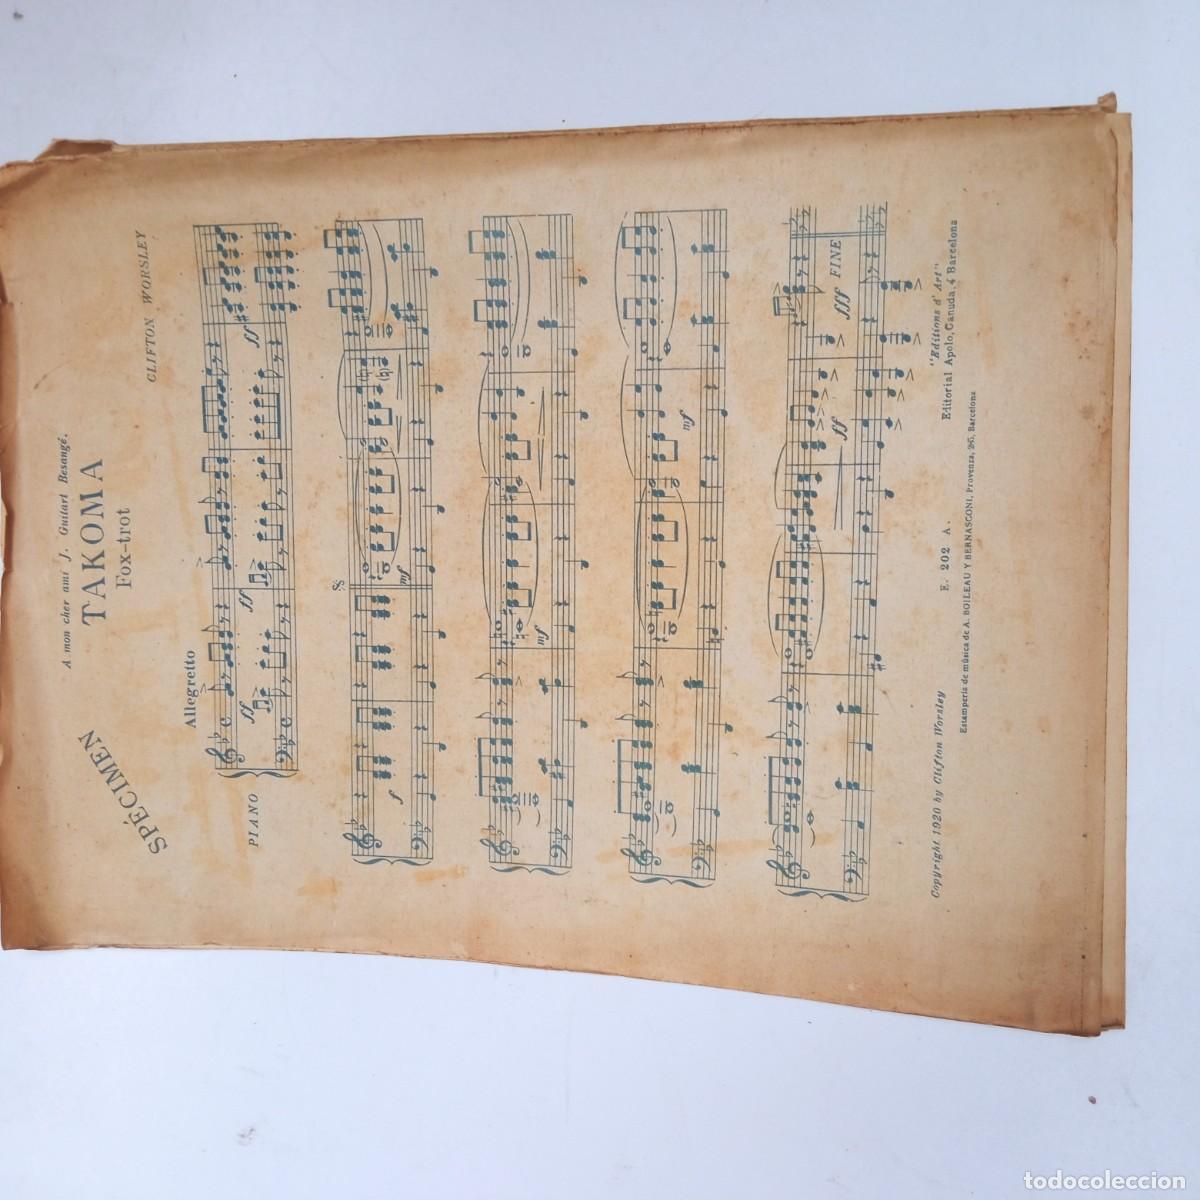 SPÉCIMEN
A mon cher ami J. Guitart Besangé.
TAKOMA
Fox-trot
CLIFTON WORSLEY
Allegretto
PIANO
ff
ff
ff
f
mf
mf
mf
ff
fff FINE
Copyright 1920 by Clifton Worsley
E. 202 A.
"Editions d'Art"
Editorial Apolo, Canuda, 4 Barcelona
Estamperia de música de A. BOILEAU Y BERNASCONI, Provenza, 285, Barcelona
todocoleccion